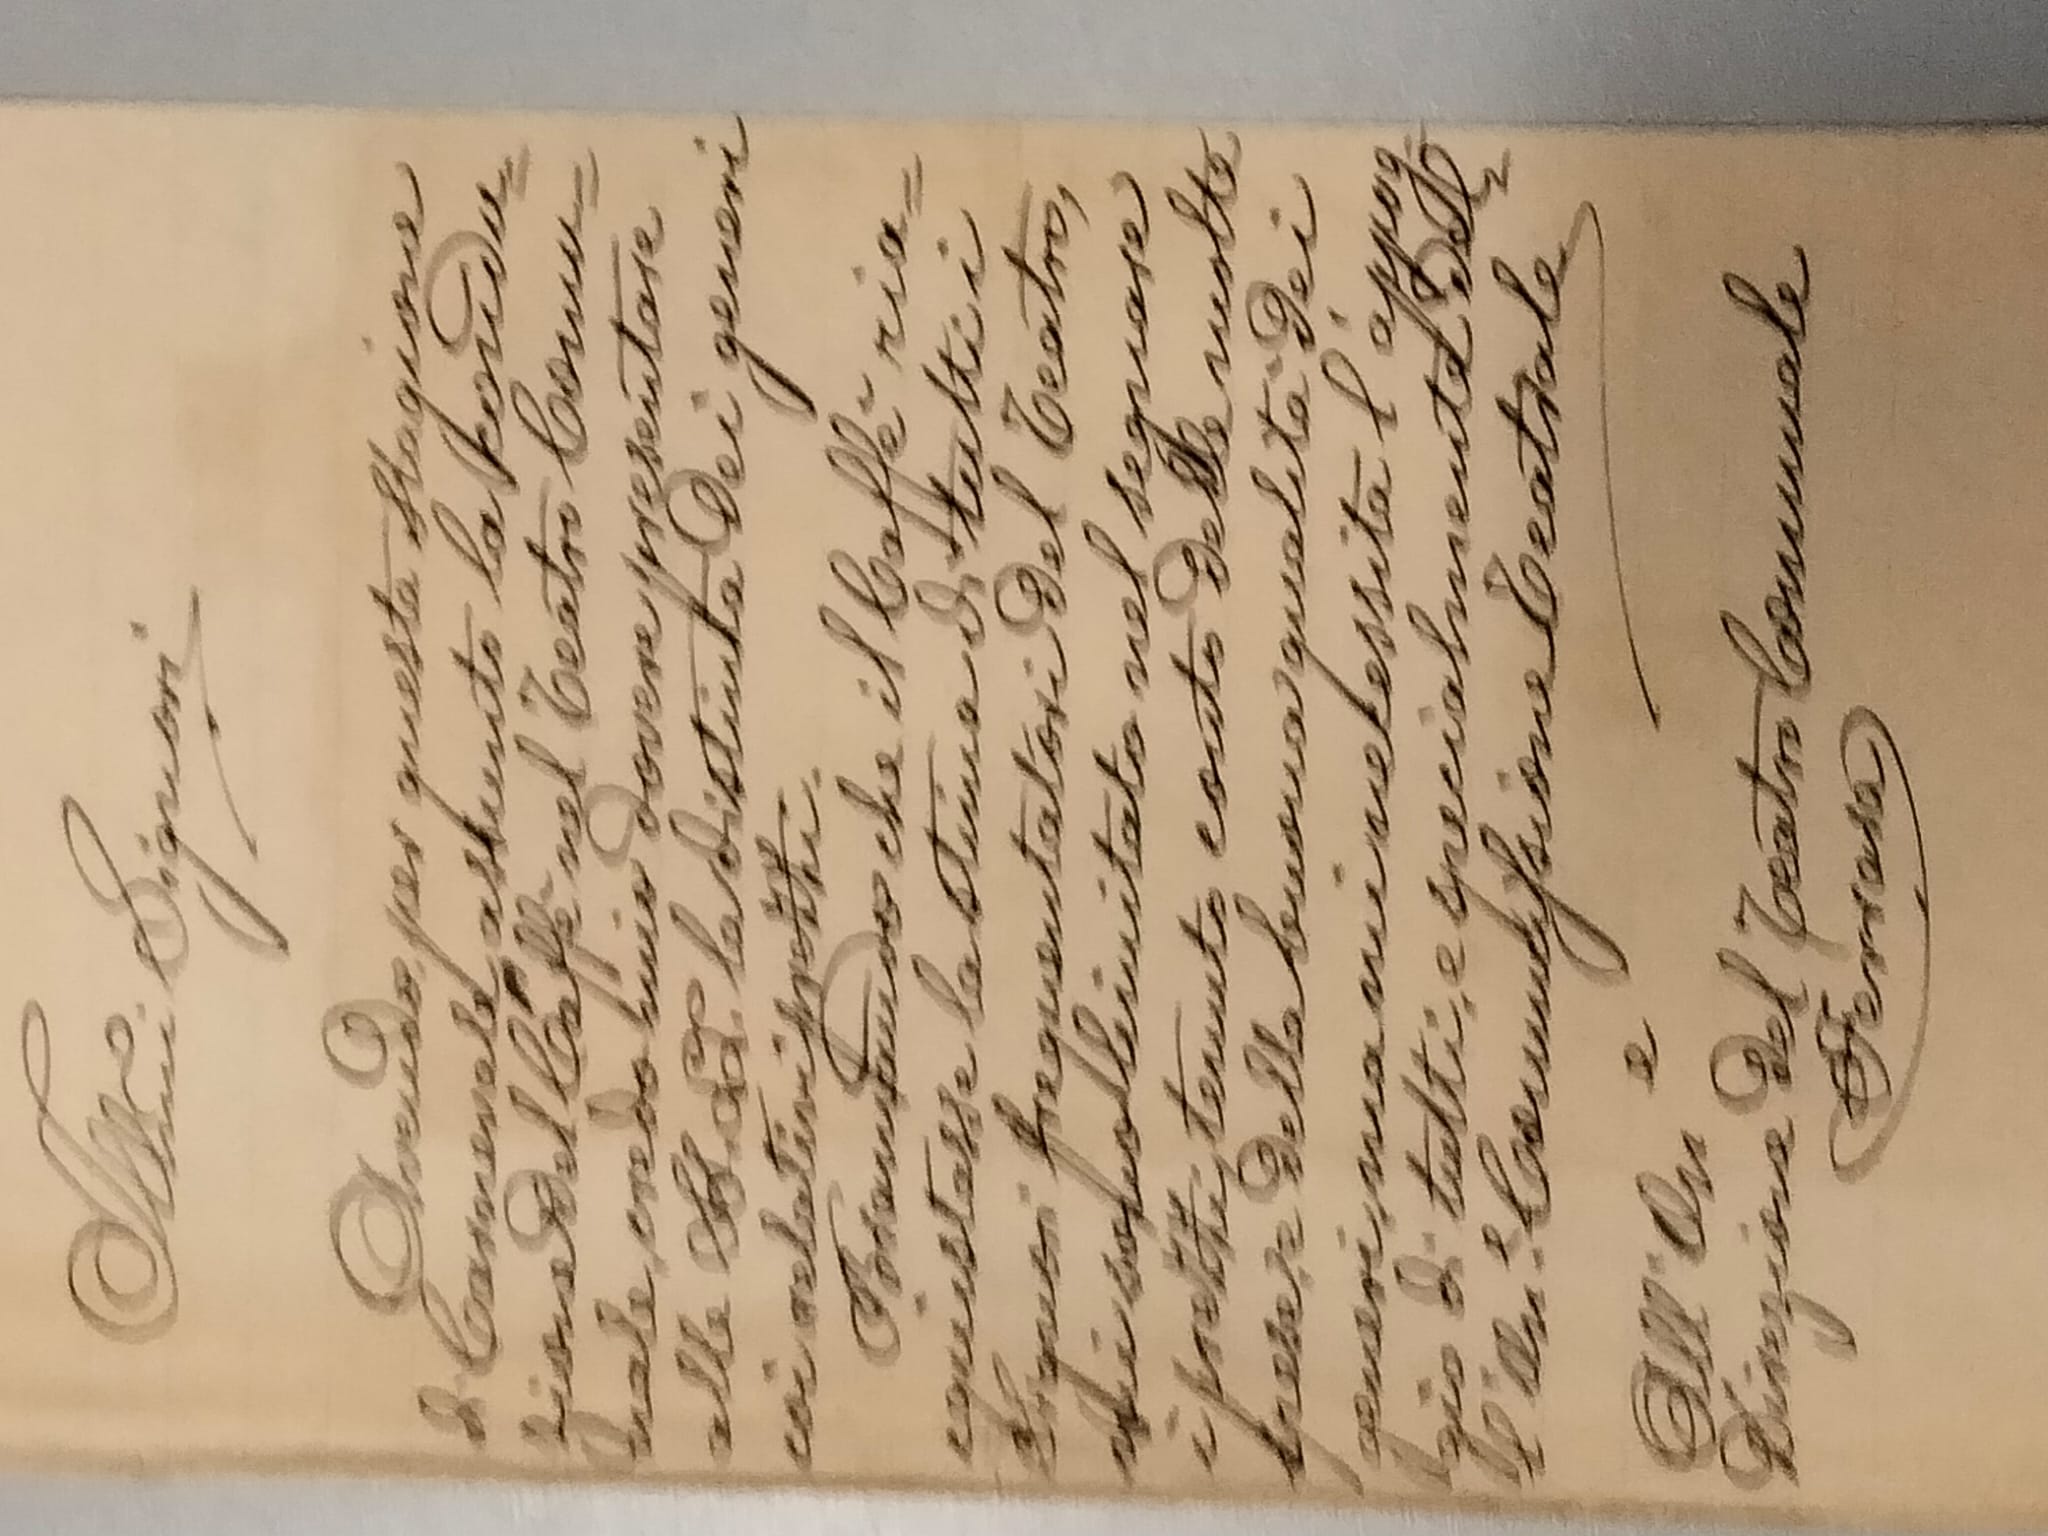 Ill.mi Signori
Avendo, per questa stagione
di Carnevale assunto la kondu=
zione del Caffè nel Teatro Comu=
nale, credo mio dovere presentare
alle le distinta dei generi
coi relativi prezzi.
Bramando che il Caffè ria=
cquistasse la stima di tutti i
Signori frequentatori del Teatro,
mi son limitato nel segnare
i prezzi, tenuto conto delle molte
spese, e della buona qualità dei
generi, ma mi nekessita l'appog-
gio di tutti, e specialmente del=
l'On. Commissione Teatrale
All'On e
Direzione del Teatro Comunale
Ferrara